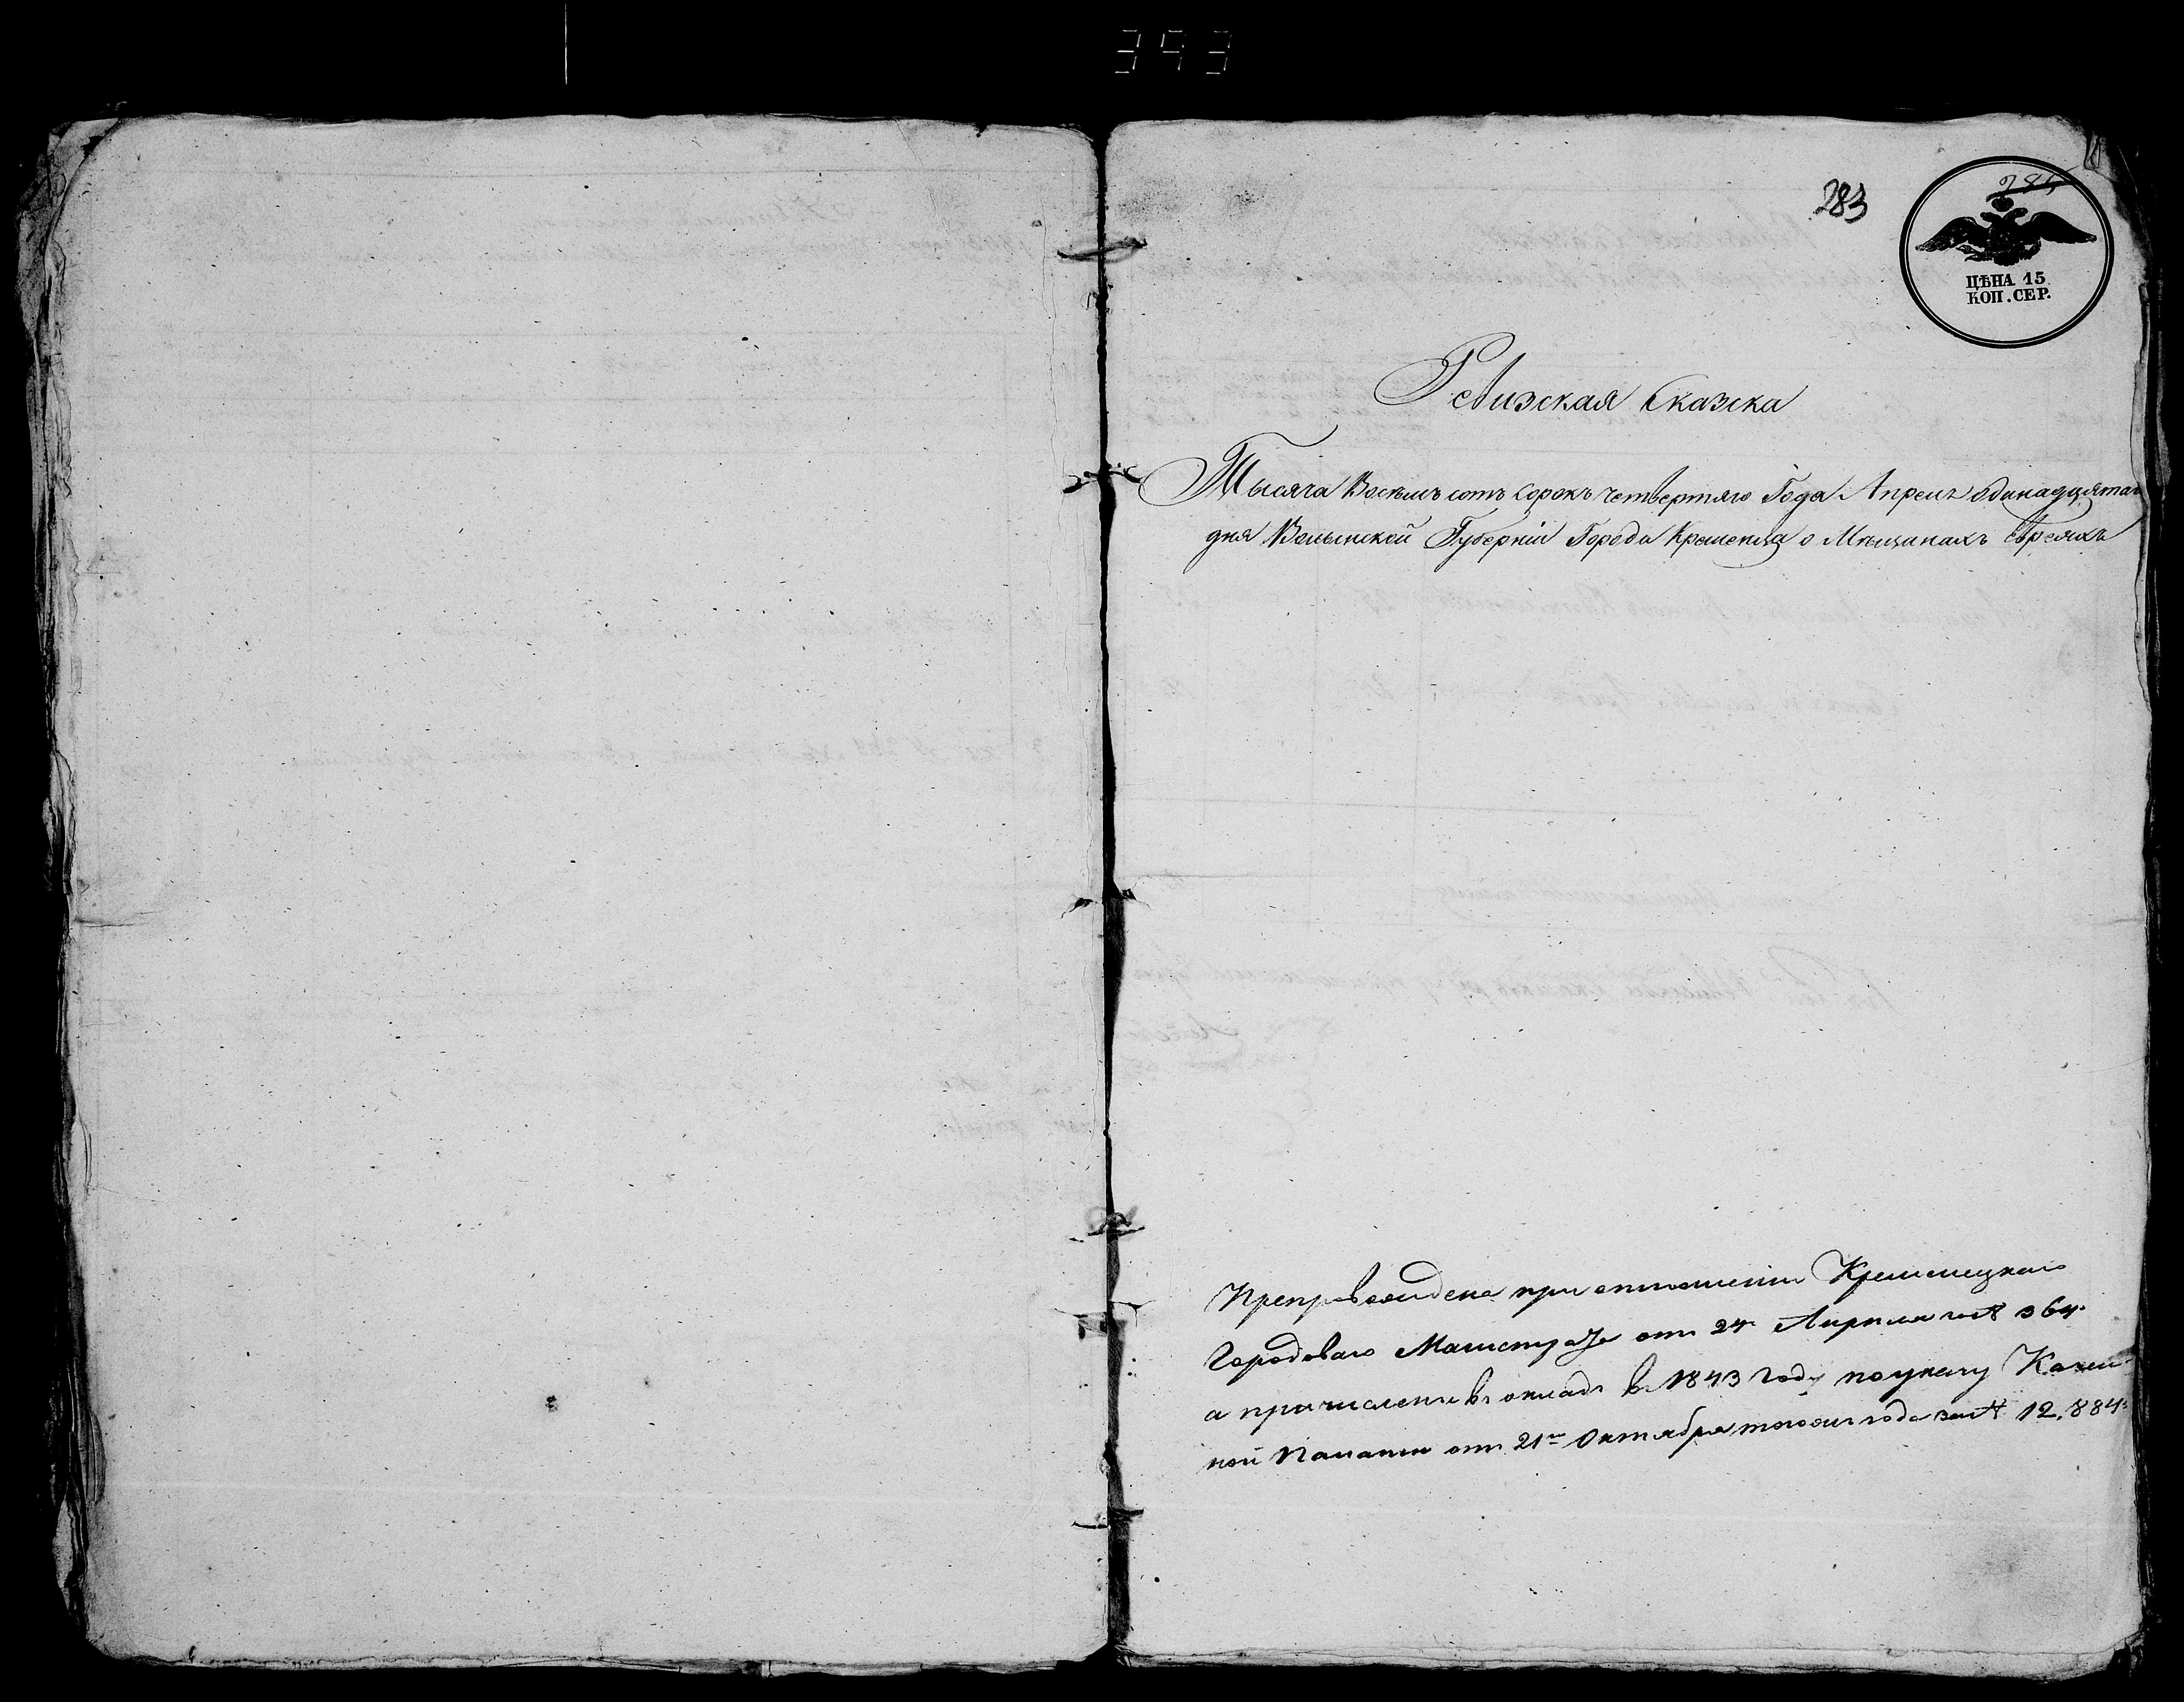 393
283
285
ЦѢНА 15
КОП. СЕР.
Ревизская Сказка
Тысяча Восемь сотъ сорокъ четвертаго Года Апреля одинадцятаго
дня Волынской Губерніи Города Кременца о Мѣщанахъ Евреяхъ
Препровождена при отношеніи Кременецкаго
Городоваго Магистрата отъ 24 Апреля за № 364
а причислены въ окладъ въ 1843 году по указу Казен-
ной Палаты отъ 21го Октября того же года за № 12,884